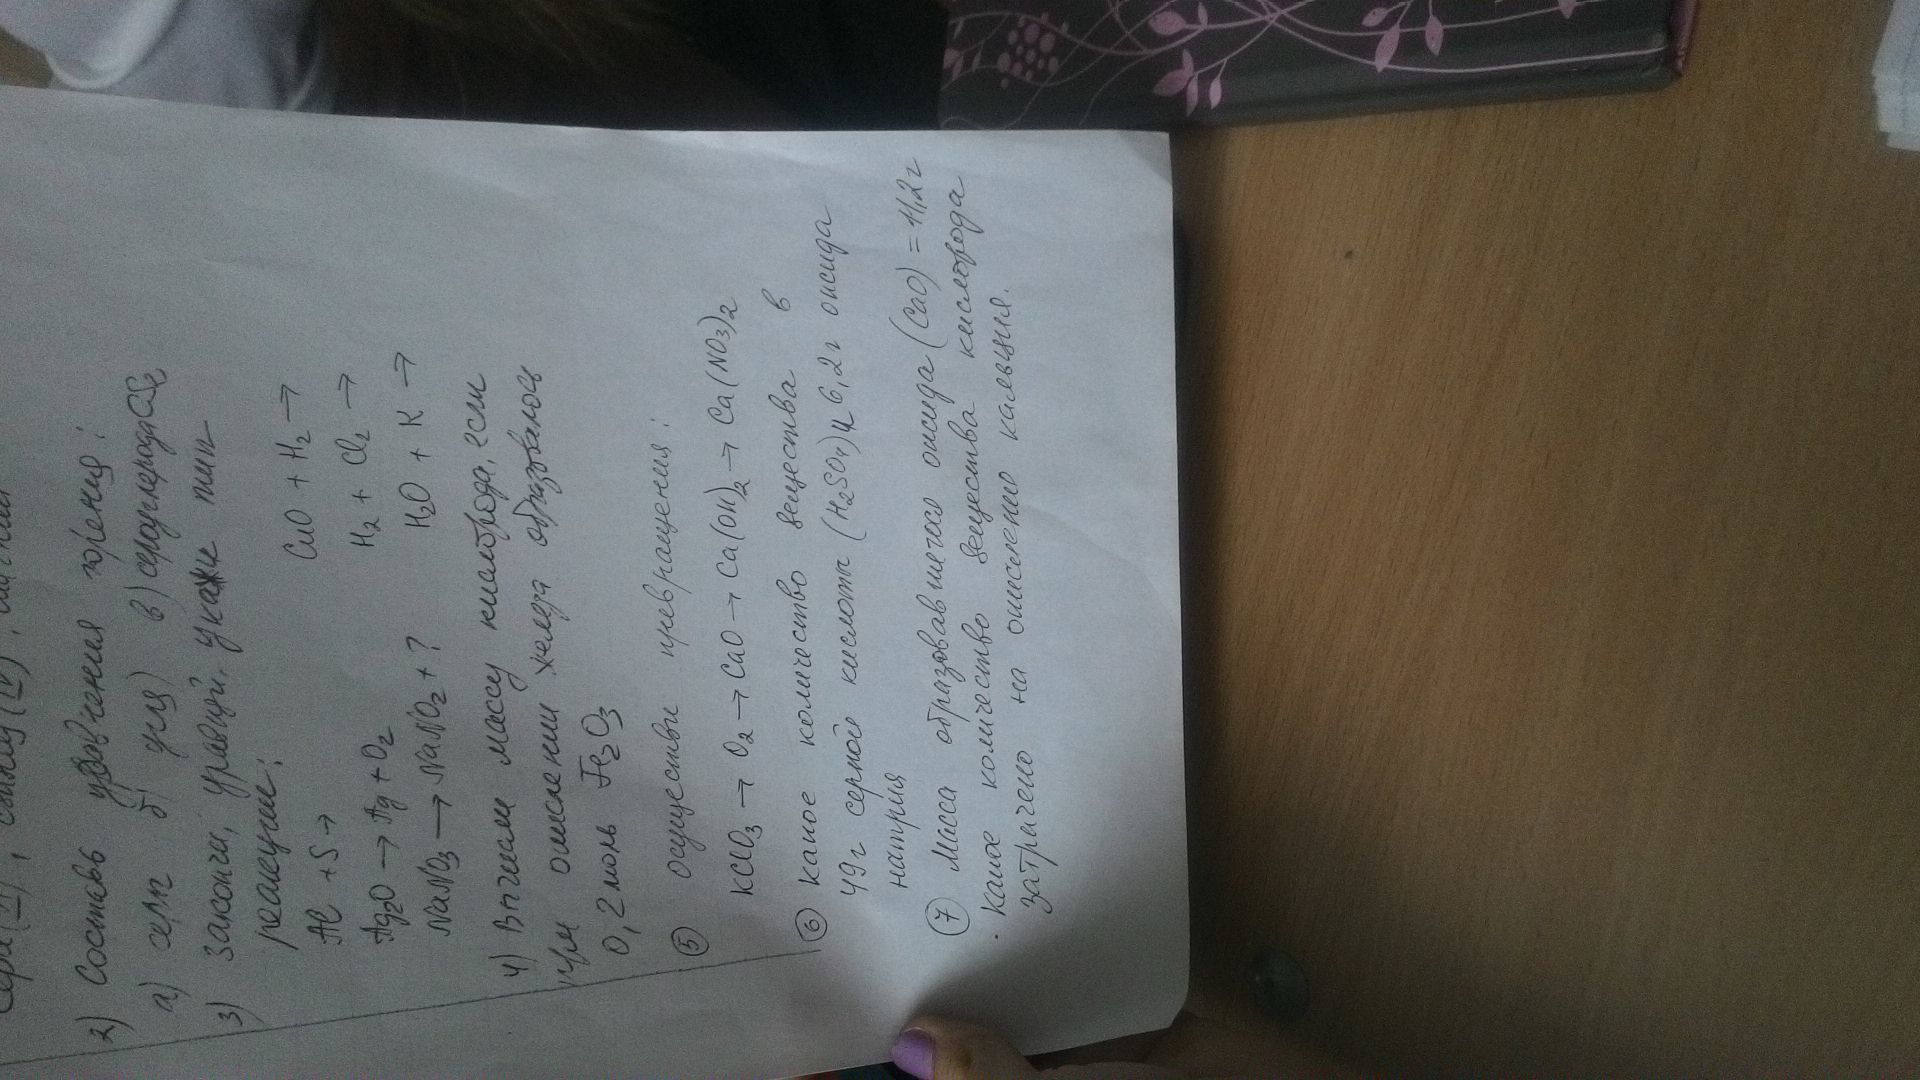 2) Составь уравнения горения:
а) серы б) угля) в) сероуглерода CS2
3) закончи уравнен. укажи тип
реакции:
Al + S → CuO + H2 →
Ag2O → Ag + O2 H2 + Cl2 →
NaNO3 → NaNO2 + ? H2O + K →
4) Вычисли массу кислорода, если
при окислении железа образовалось
0,2 моль Fe2O3
5 осуществи превращения:
KClO3 → O2 → CaO → Ca(OH)2 → Ca(NO3)2
6 какое количество вещества в
49г серной кислоты (H2SO4) и 6,2г оксида
натрия
7 Масса образовавшегося оксида (CaO) = 11,2г
какое количество вещества кислорода
затрачено на окисление кальция.